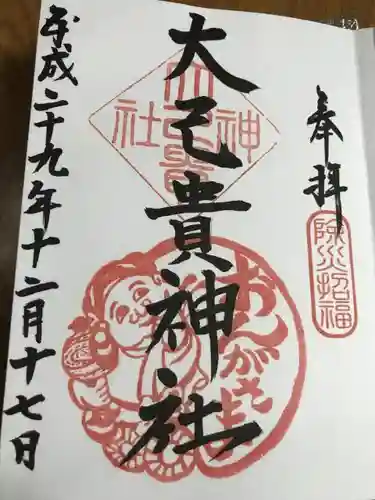 奉拝
除災招福
大己貴神社
大己貴神社
おんがさま
平成二十九年十二月十七日